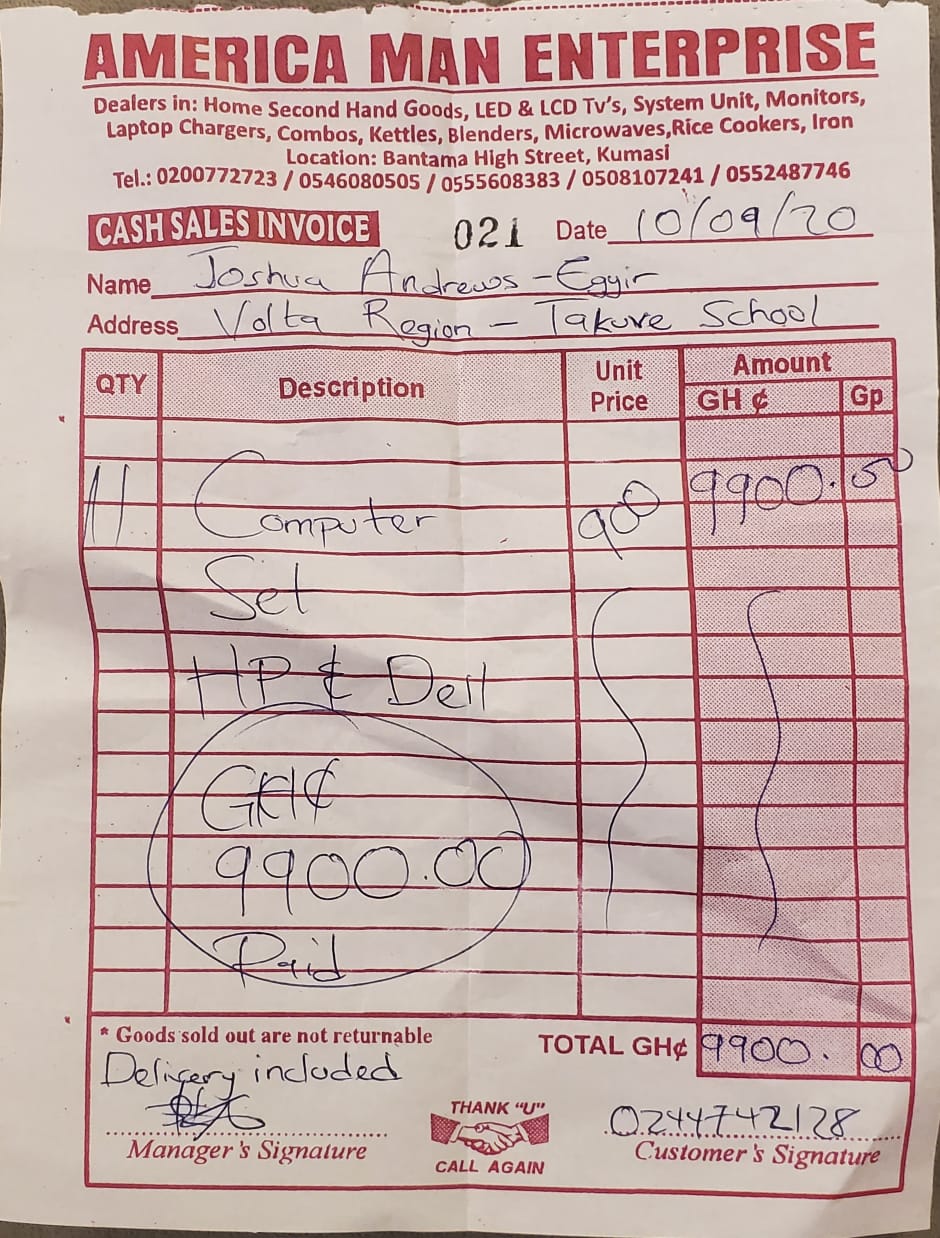 AMERICA MAN ENTERPRISE
Dealers in: Home Second Hand Goods, LED & LCD Tv's, System Unit, Monitors,
Laptop Chargers, Combos, Kettles, Blenders, Microwaves,Rice Cookers, Iron
Location: Bantama High Street, Kumasi
Tel.: 0200772723 / 0546080505 / 0555608383 / 0508107241 / 0552487746
CASH SALES INVOICE 021 Date 10/09/20
Name Joshua Andrews-Egyir
Address Volta Region - Takuve School
QTY Description Unit Price Amount GH ₵ Gp
11 Computer 900 9900.00
Set
HP & Dell
GH₵
9900.00
Paid
* Goods sold out are not returnable
TOTAL GH₵ 9900.00
Delivery included
THANK "U"
0244742128
Manager's Signature
CALL AGAIN
Customer's Signature